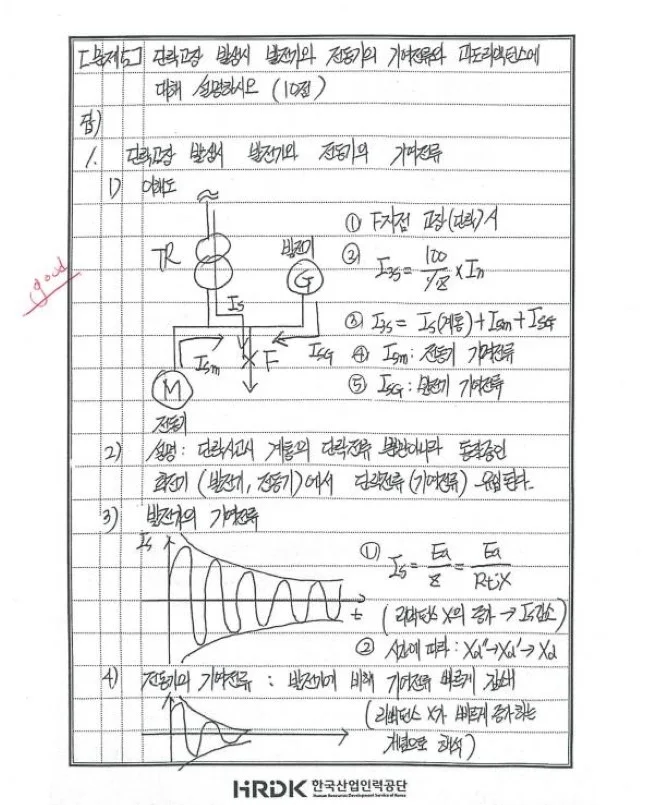 [문제5] 단락고장 발생시 발전기와 전동기의 기여전류와 과도리액턴스에
대해 설명하시오 (10점)
답)
1. 단락고장 발생시 발전기와 전동기의 기여전류
1) 이해도
TR
발전기
G
Is
Ism
F
ISG
M
전동기
① F지점 고장(단락)시
② I3s = 100/%Z × In
③ I3s = Is(계통) + Ism + ISG
④ Ism : 전동기 기여전류
⑤ ISG : 발전기 기여전류
good
2) 설명 : 단락사고시 계통의 단락전류 뿐만아니라 운전중인
회전기 (발전기, 전동기)에서 단락전류 (기여전류) 유입된다.
3) 발전기의 기여전류
Is
t
① Is = Ea/Z = Ea/R+jX
(리액턴스 X의 증가 → Is감소)
② 시간에 따라 : Xd''→Xd'→Xd
4) 전동기의 기여전류 : 발전기에 비해 기여전류 빠르게 감쇄
(리액턴스 X가 빠르게 증가하는
개념으로 해석)
HRDK 한국산업인력공단
Human Resources Development Service of Korea